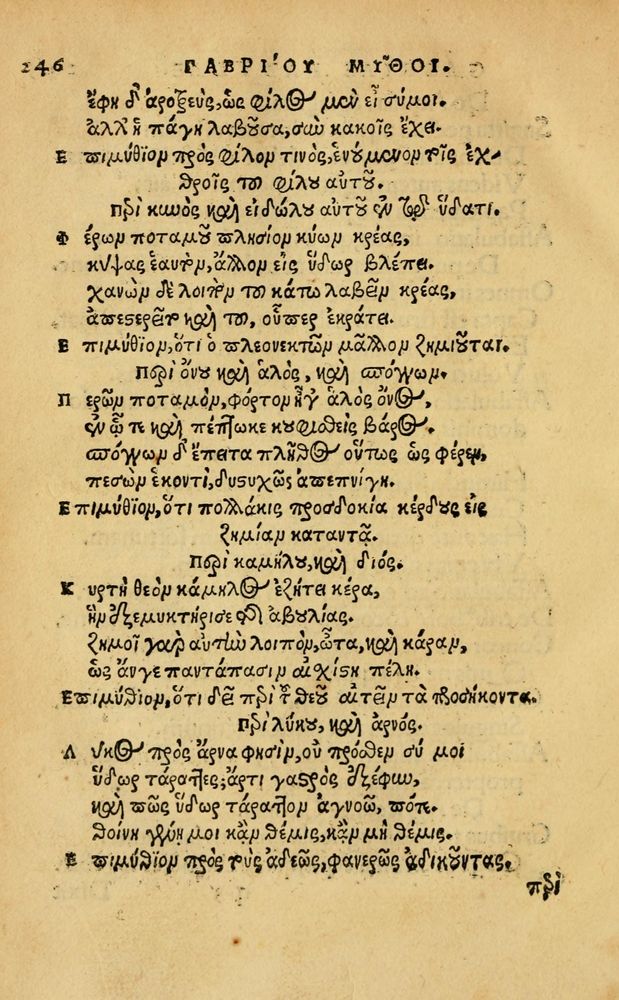 246 ΓΑΒΡΙΟΥ ΜΥΘΟΙ.
ἔφη δ' ἀροτρεύς, ὡς φίλος μὲν εἶ σύ μοι.
ἀλλ' ἡ πάγη λαβοῦσα, σὺν κακοῖς ἔχει.
Επιμύθιον πρὸς φίλον τινὸς, ἑνούμενον τοῖς ἐχ-
θροῖς τοῦ φίλου αὐτοῦ.
Περὶ κυνὸς καὶ εἰδώλου αὐτοῦ ἐν τῷ ὕδατι.
Φέρων ποταμοῦ πλησίον κύων κρέας,
κύψας ἑαυτὸν, ἄλλον εἰς ὕδωρ βλέπει.
χανὼν δὲ λοιπὸν τὸ κάτω λαβεῖν κρέας,
ἀπεστερεῖτο καὶ τοῦ, οὗπερ ἐκράτει.
Επιμύθιον, ὅτι ὁ πλεονεκτῶν μᾶλλον ζημιοῦται.
Περὶ ὄνου καὶ ἁλὸς, καὶ σπόγγων.
Περῶν ποταμὸν, φόρτον ἦγ' ἁλὸς ὄνος,
ἐν ᾧ τι καὶ πέπτωκε κουφισθεὶς βάρος.
σπόγγων δ' ἔπειτα πλῆθος οὕτως ὡς φέρει,
πεσὼν ἑκοντὶ, δυστυχῶς ἀπεπνίγη.
Επιμύθιον, ὅτι πολλάκις προσδοκία κέρδους εἰς
ζημίαν καταντᾷ.
Περὶ καμήλου, καὶ διός.
Κυρτὴ θεὸν κάμηλος ἐζήτει κέρα,
ἣν ἐξεμυκτήρισε τῆς ἀβουλίας.
ζημοῖ γὰρ αὐτὴν λοιπὸν, ὦτα, καὶ κάραν,
ὡς ἄνγε παντάπασιν αἰχίστη πέλῃ.
Επιμύθιον, ὅτι δεῖ παρὰ τοῦ θεοῦ αἰτεῖν τὰ προσήκοντα.
Περὶ λύκου, καὶ ἀρνός.
Λύκος πρὸς ἄρνα φησὶν, οὐ πρόθεν σύ μοι
ὕδωρ τάραττες; ἄρτι γαστρὸς ἐξέφυν,
καὶ πῶς ὕδωρ τάραττον ἀγνοῶ, πότε.
θοίνη γενῇ μοι κἂν θέμις, κἂν μὴ θέμις.
Επιμύθιον πρὸς τοὺς ἀδεῶς, φανερῶς ἀδικοῦντας.
περὶ